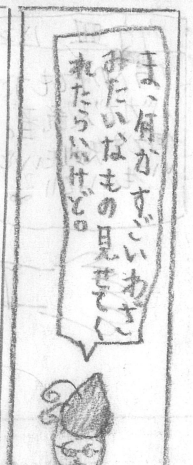 ま、何かすごいわざ
みたいなもの見せてく
れたらいいけど。